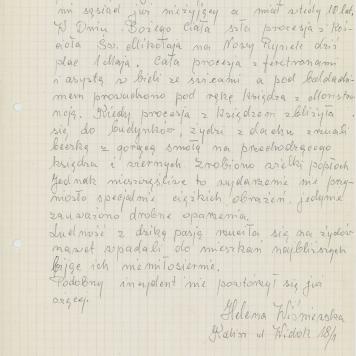 mi sąsiad już nieżyjący a miał wtedy 10 lat.
W Dniu Bożego Ciała szła procesja z Koś-
cioła Św. Mikołaja na Nowy Rynek dziś
plac 1 Maja. Cała procesja z feretronami
i asystą w bieli ze świcami a pod baldachi-
mem prowadzono pod rękę księdza z Monstra-
ncją. Kiedy procesja z księdzem zbliżyła
się do budynków, żydzi z dachu zwalili
beczkę z gorącą smołą na przechodzącego
księdza i wiernych. Zrobiono wielki popłoch
Jednak nieszczęśliwe to wydarzenie nie przy-
niosło specjalnie ciężkich obrażeń, jedynie
zauważono drobne oparzenia.
Ludność z dziką pasją rzuciła się na żydów
nawet wpadali do mieszkań najbliższych
bijąc ich niemiłosiernie.
Podobny incydent nie powtórzył się już
więcej.
Helena Wiśniewska
Kalisz ul Widok 18/